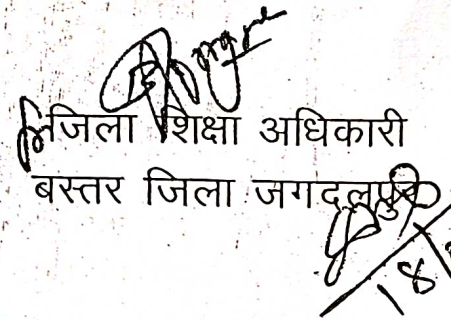 जिला शिक्षा अधिकारी
बस्तर जिला जगदलपुर
18